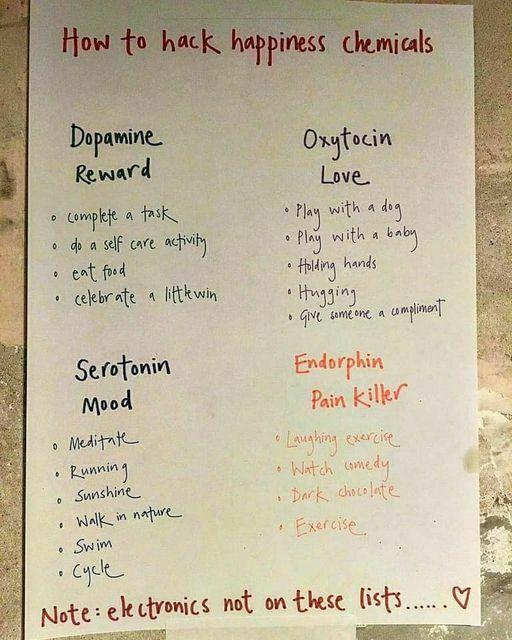 How to hack happiness chemicals
Dopamine
Reward
• complete a task
• do a self care activity
• eat food
• celebrate a little win
Oxytocin
Love
• Play with a dog
• Play with a baby
• Holding hands
• Hugging
• Give someone a compliment
Serotonin
Mood
• Meditate
• Running
• Sunshine
• Walk in nature
• Swim
• Cycle
Endorphin
Pain Killer
• Laughing exercise
• Watch comedy
• Dark chocolate
• Exercise
Note: electronics not on these lists...... ♡